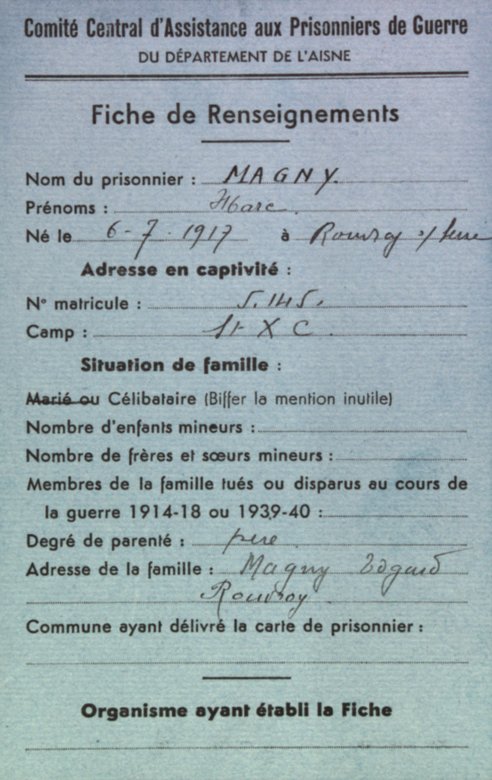 Comité Central d'Assistance aux Prisonniers de Guerre
DU DÉPARTEMENT DE L'AISNE
Fiche de Renseignements
Nom du prisonnier : MAGNY.
Prénoms : Marc.
Né le 6-7-1917 à Rouvroy s/ Serre
Adresse en captivité :
N° matricule : 5.145.
Camp : St X C
Situation de famille :
Marié ou Célibataire (Biffer la mention inutile)
Nombre d'enfants mineurs :
Nombre de frères et sœurs mineurs :
Membres de la famille tués ou disparus au cours de
la guerre 1914-18 ou 1939-40 :
Degré de parenté : père
Adresse de la famille : Magny Edgard
Rouvroy
Commune ayant délivré la carte de prisonnier :
Organisme ayant établi la Fiche